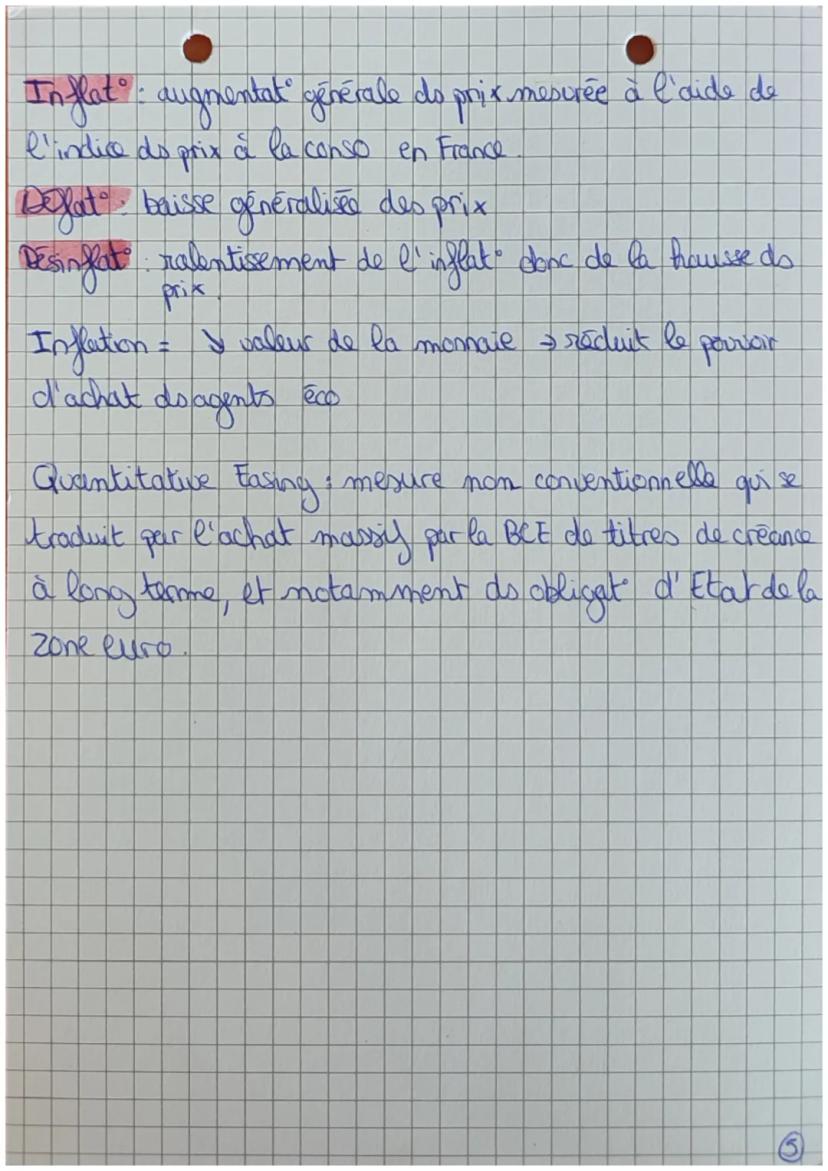 Inflat° : augmentat° générale ds prix mesurée à l'aide de
l'indice ds prix à la conso en France.
Déflat° : baisse généralisée des prix
Désinflat° : ralentissement de l'inflat° donc de la hausse ds
prix.
Inflation = ↘ valeur de la monnaie → réduit le pouvoir
d'achat ds agents éco
Quantitative Easing : mesure non conventionnelle qui se
traduit par l'achat massif par la BCE de titres de créance
à long terme, et notamment ds obligat° d'Etat de la
zone euro.
5